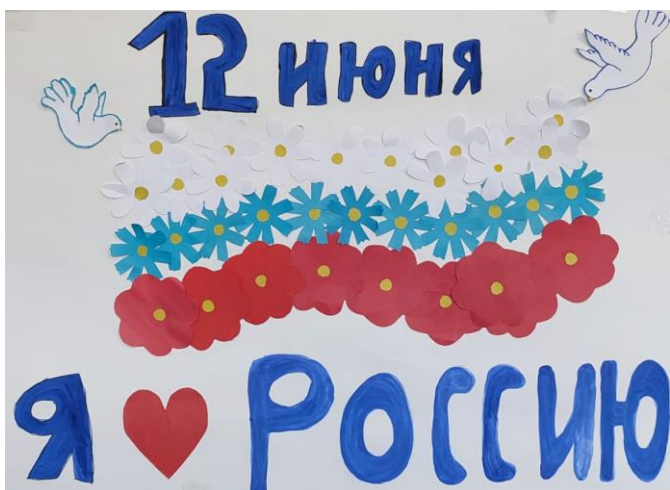 12 июня
Я ❤ Россию